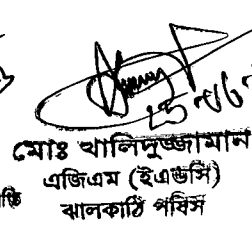 মোঃ খালিদুজ্জামান
এজিএম (ইএন্ডসি)
ঝালকাঠি পবিস